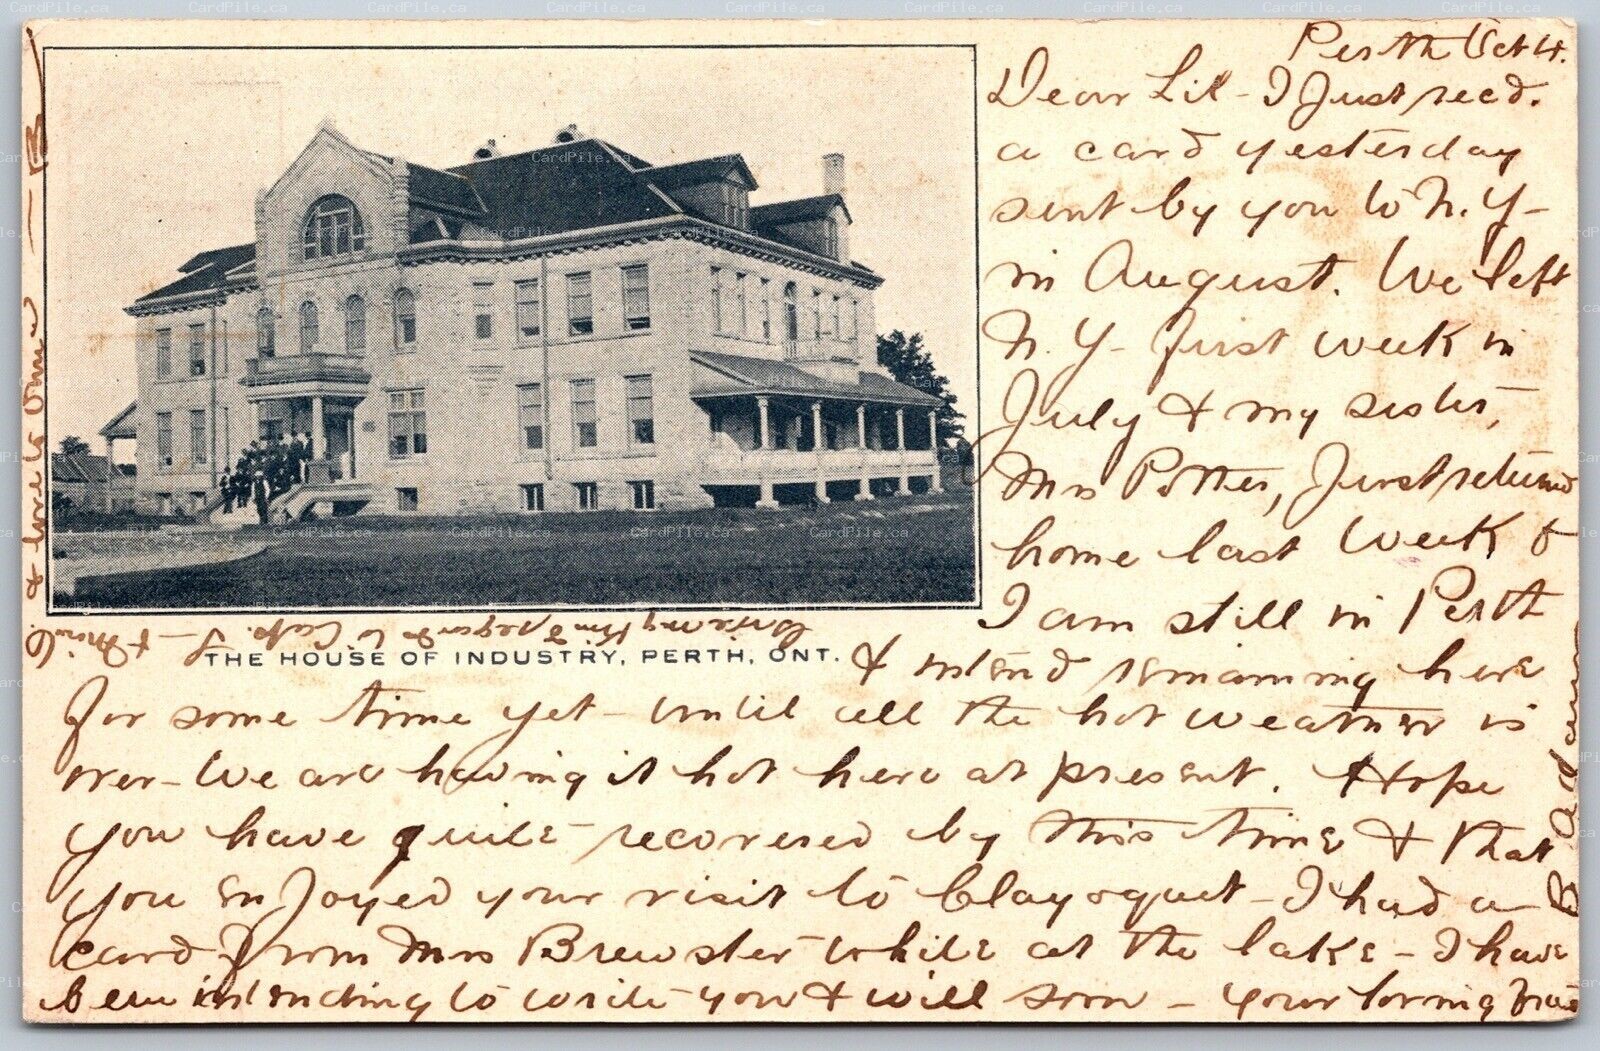 Perth Oct 4.
Dear Lil - I Just recd.
a card yesterday
sent by you to N. Y-
in August. We left
N. Y- first week in
July & my sister,
Mrs Potter, Just returned
home last week &
I am still in Perth
& intend remaining here
for some time yet - until all the hot weather is
over - We are having it hot here at present. Hope
you have quite recovered by this time & that
you enjoyed your visit to Clayoquot - I had a
card from Mrs Brewster while at the lake - I have
been intending to write you & will soon - your loving friend
B Adams
Give my kind regards to Capt. J - & Mrs G.
& love to Oma - B
THE HOUSE OF INDUSTRY, PERTH, ONT.
CardPile.ca